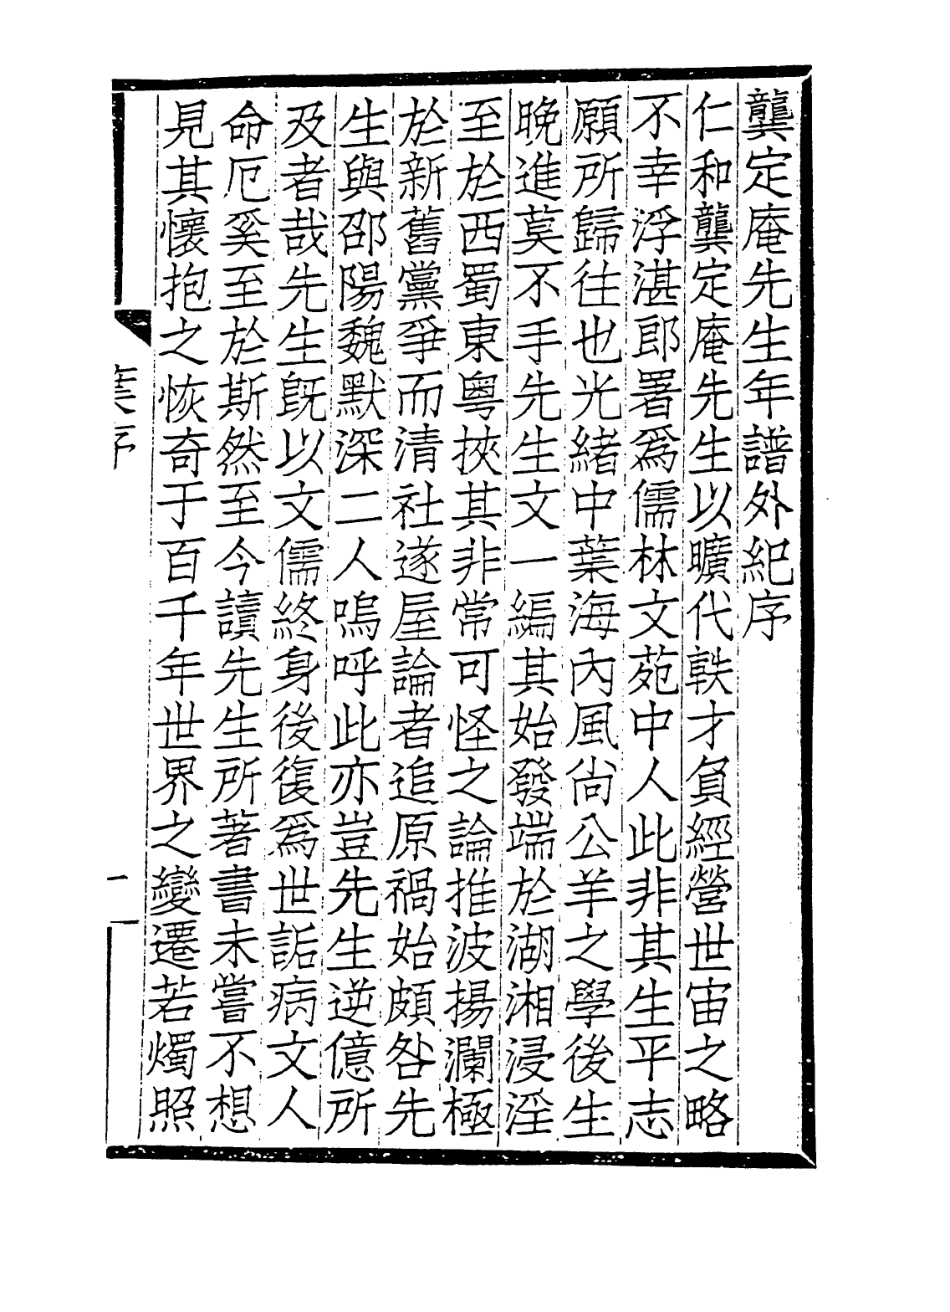 龔定庵先生年譜外紀序
仁和龔定庵先生以曠代軼才負經營世宙之略
不幸浮湛郎署爲儒林文苑中人此非其生平志
願所歸往也光緒中葉海內風尙公羊之學後生
晚進莫不手先生文一編其始發端於湖湘浸淫
至於西蜀東粵挾其非常可怪之論推波揚瀾極
於新舊黨爭而清社遂屋論者追原禍始頗咎先
生與邵陽魏默深二人嗚呼此亦豈先生逆億所
及者哉先生旣以文儒終身後復爲世詬病文人
命厄奚至於斯然至今讀先生所著書未嘗不想
見其懷抱之恢奇于百千年世界之變遷若燭照
序
一